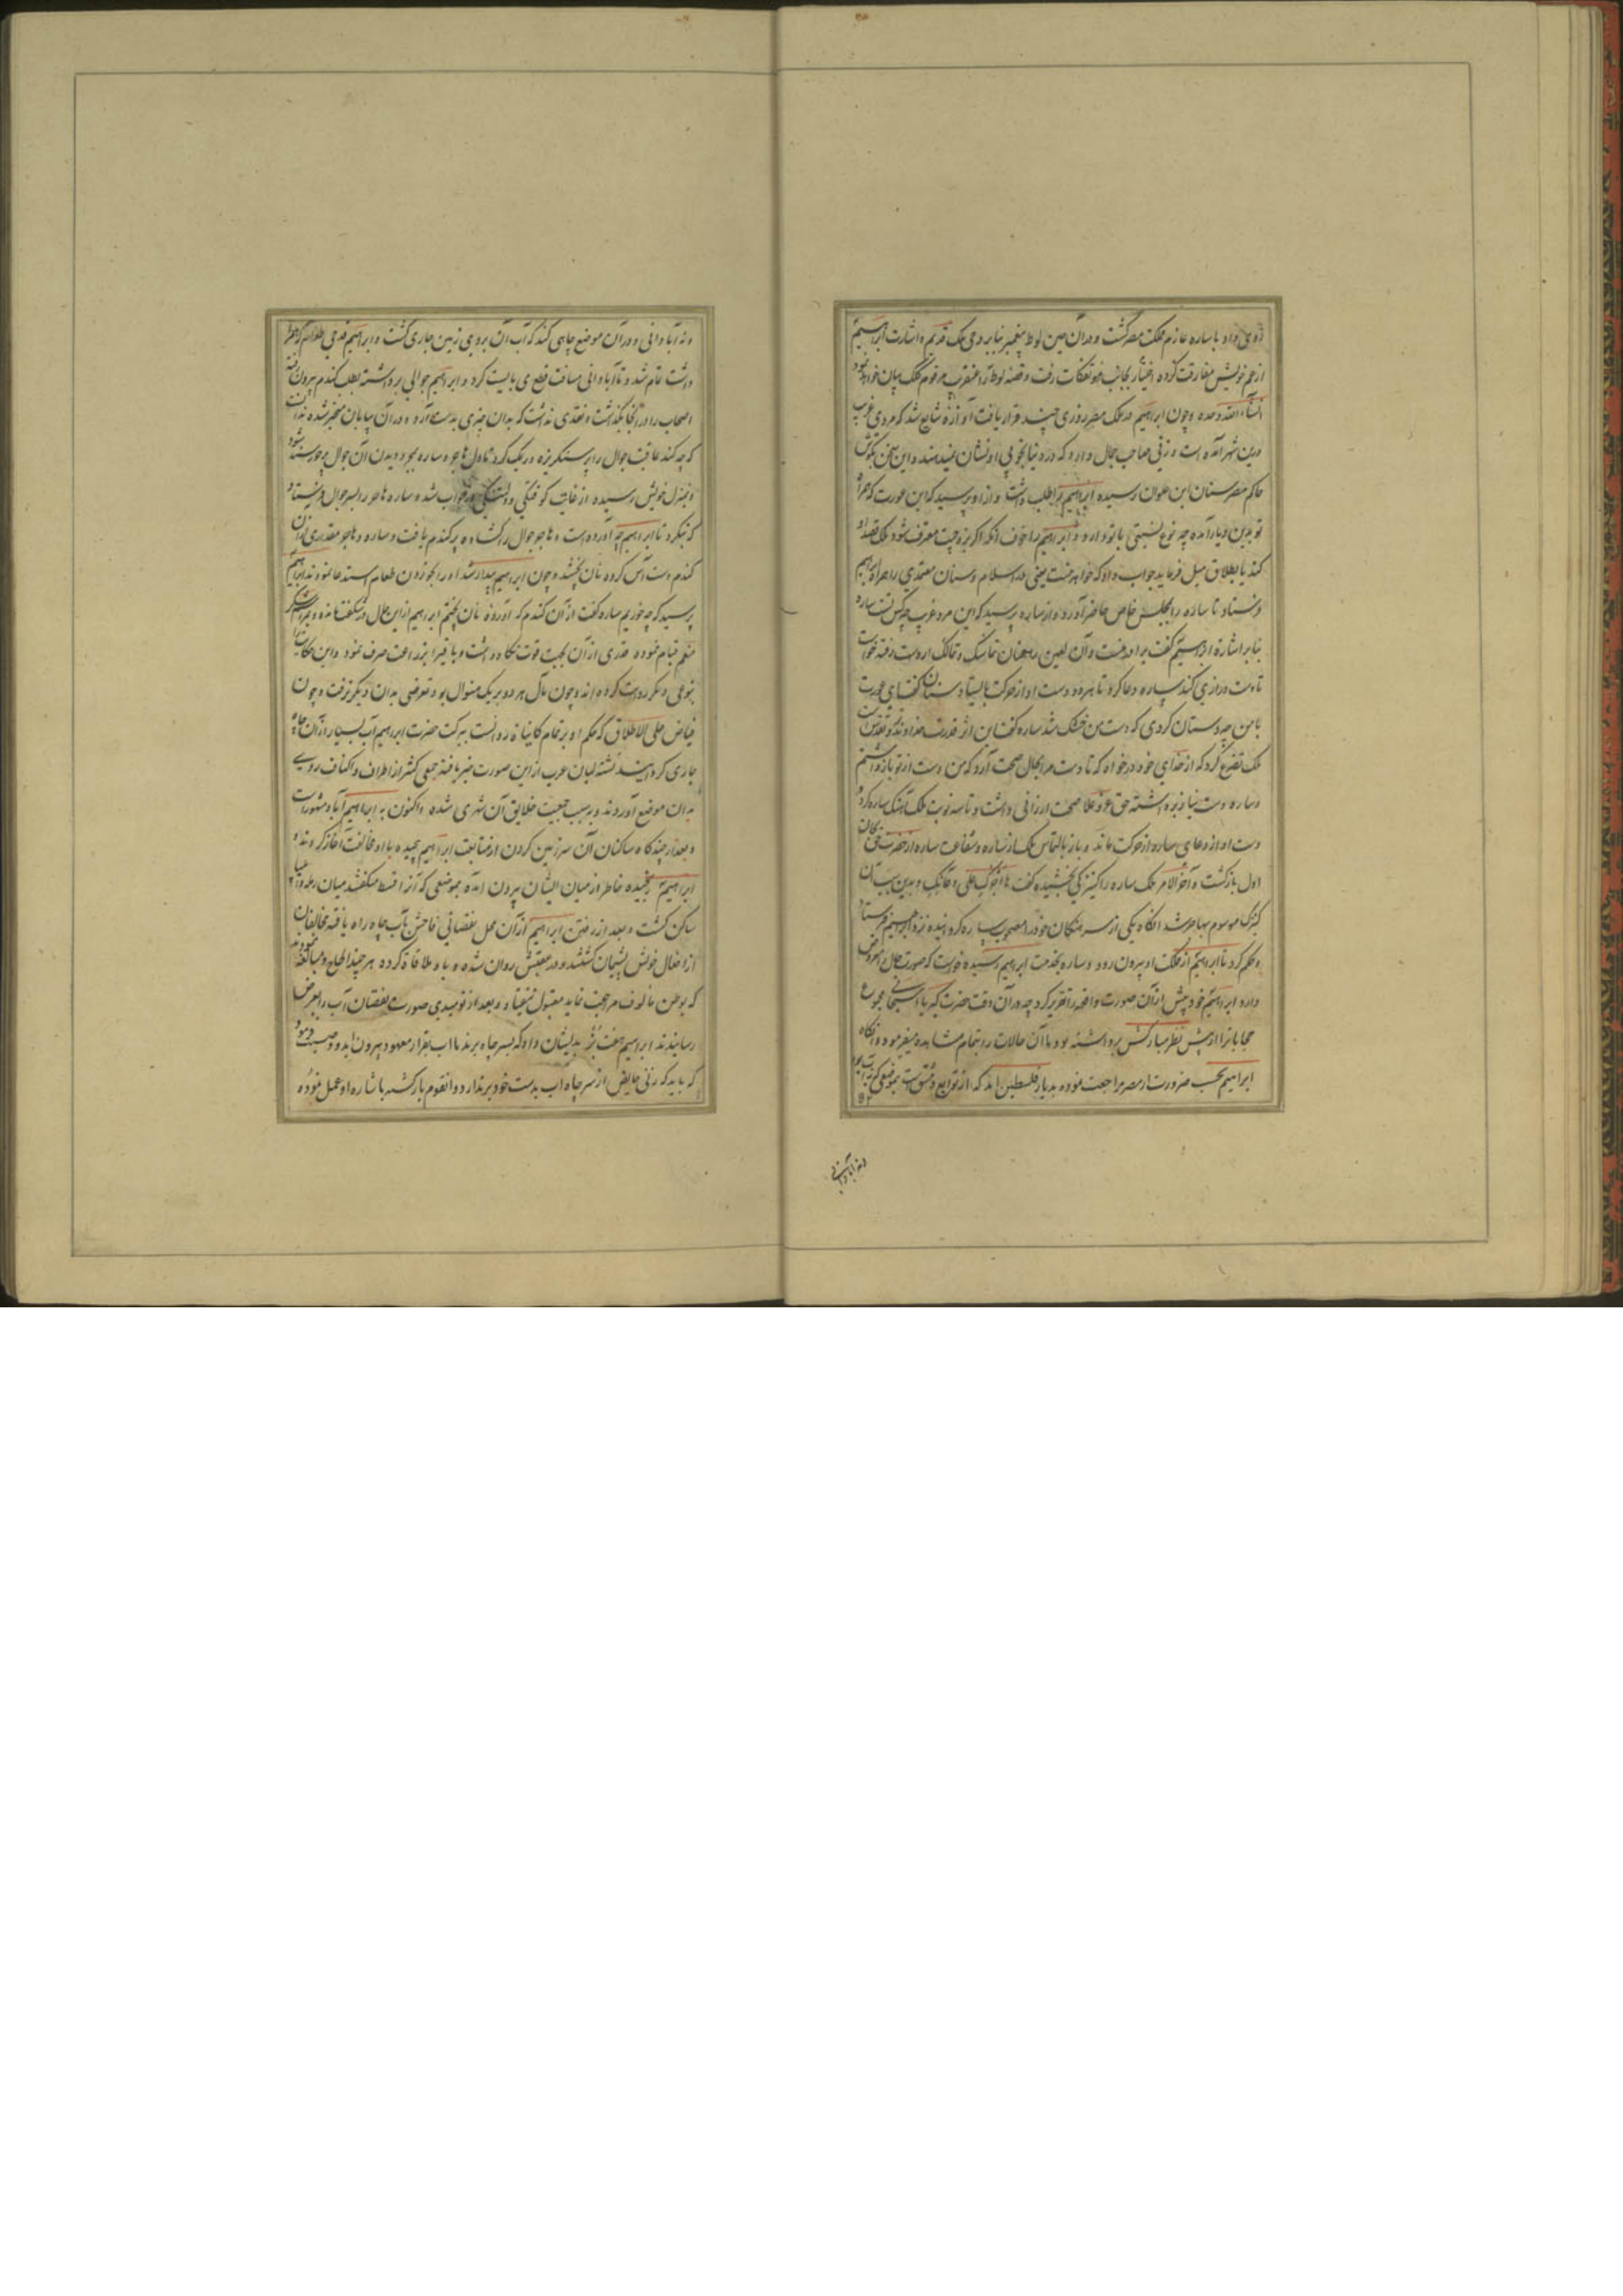 روی داد با ساره عازم ملک مصر گشت و در آن حین لوط پیغمبر بنابر وحی ملک قدیم و اشارت ابراهیم
از عم خویش مفارقت کرده اختیار بجانب مؤتفکات رفت و قصه لوط را عنقریب مرقوم کلک بیان خواهد بود
انشاء الله وحده و چون ابراهیم در ملک مصر روزی چند قرار یافت آوازه شایع شد که مردی غریب
درین شهر آمده است و زنی صاحب جمال دارد که در دنیا بخوبی او نشان نمیدهند و این سخن بگوش
حاکم مصر سنان ابن علوان رسیده ابراهیم را طلب داشت و ازو پرسید که این عورت که همراه
تو بدین دیار آمده چه نوع نسبتی با تو دارد و ابراهیم را خوف آنکه اگر بزوجیت معترف شود ملک قصد او
کند یا بطلاق میل فرماید جواب داد که خواهر منست یعنی در اسلام و سنان معتمدی را همراه ابراهیم
فرستاد تا ساره را بمجلس خاص حاضر آورد و از ساره پرسید که این مرد غریب چه کس تست ساره
بنابر اشارة ابراهیم گفت برادر منست و آن لعین را عنان تماسک و تمالک از دست رفته خواست
تا دست درازی کند ساره دعا کرد تا هر دو دست او از حرکت بایستاد سنان گفت ای عورت
با من چه دستان کردی که دست من خشک شد ساره گفت این اثر قدرت خداوند
ملک تضرع کرد که از خدای خود درخواه که تا دست مرا بحال صحت آرد که من دست از تو بازداشتم
و ساره دست نیاز برداشته حق عز و علا صحت ارزانی داشت و تا سه نوبت ملک آهنگ ساره کرد و
دست او از دعای ساره از حرکت ماند و باز بالتماس ملک از ساره و شفاعت ساره از حضرت
اول بازگشت و آخر الامر ملک ساره را کنیزکی بخشیده گفت ها آجرک علی دعائک و بدین سبب آن
کنیزک موسوم بهاجر شد آنگاه یکی از سرهنگان خود را مصحوب ساره گردانیده نزد ابراهیم فرستاد
و حکم کرد تا ابراهیم از ملک او بیرون رود و ساره بخدمت ابراهیم رسیده خواست که صورت حال معروض
دارد ابراهیم خود پیش از آن صورت واقعه را تقریر کرد چه در آن وقت حضرت کبریا سبحانی مجموع
حجابها را از پیش نظر مبارکش برداشته بود تا آن حالات را بتمام مشاهده میفرمود و آنگاه
ابراهیم بحسب ضرورت از مصر مراجعت نموده بدیار فلسطین آمد که از توابع دمشق است بموضعی که
نه آبادانی
و نه آبادانی و در آن موضع چاهی کند که آب آن بروی زمین جاری گشت و ابراهیم قدحی طعام که همراه
داشت تمام شد و تا آبادانی مسافت قطع می بایست کرد و ابراهیم جوالی برداشته بطلب گندم بیرون رفته
اصحاب را در آنجا بگذاشت و نقدی نداشت که بدان چیزی بدست آرد و در آن بیابان متحیر شده ندانست
که چه کند عاقبت جوال را پر سنگریزه و ریگ کرد تا دل هاجر و ساره بمجرد دیدن آن جوال خرسند شود
و بمنزل خویش رسیده از غایت کوفتگی و دلتنگی در خواب شد و ساره هاجر را بسر جوال فرستاد
که بنگرد تا ابراهیم چه آورده است و هاجر جوال را گشاده پر گندم یافت و ساره و هاجر مقداری از آن
گندم دست آس کرده نان پختند و چون ابراهیم بیدار شد او را بخوردن طعام استدعا نمودند ابراهیم
پرسید که چه خوریم ساره گفت از آن گندم که آورده نان پختیم ابراهیم از این حال در شگفت مانده و بمراسم شکر
منعم قیام نموده قدری از آن بجهت قوت نگاه داشت و باقی را بزراعت صرف نمود و این حکایت را
بنوعی دیگر روایت کرده اند و چون مآل هر دو بر یک منوال بود تعرضی بدان دیگر نرفت و چون
فیاض علی الاطلاق که حکم او بر تمام کاینات روانست ببرکت حضرت ابراهیم آب بسیار از آن چاه
جاری گردانید تشنه لبان عرب از این صورت خبر یافته جمعی کثیر از اطراف و اکناف روی
بدان موضع آوردند و بسبب جمعیت خلایق آن شهری شده و اکنون به ابراهیم آباد مشهور است
و بعد از چندگاه ساکنان آن سرزمین گردن از متابعت ابراهیم پیچیده با او مخالفت آغاز کردند و
ابراهیم رنجیده خاطر از میان ایشان بیرون آمده بموضعی که آنرا قسط میگفتند میان رمله و ایلیا
ساکن گشت و بعد از رفتن ابراهیم از آن محل نقصانی فاحش بآب چاه راه یافته مخالفان
از افعال خویش پشیمان گشتند و در عقبش روان شده و با او ملاقاة کرده هر چند الحاح و مبالغه نمودند
که بوطن مألوف مراجعت نماید مقبول نیفتاد و بعد از نومیدی صورت نقصان آب را بعرض
رسانیدند ابراهیم هفت بز بدیشان داد که بسر چاه برند تا آب بقرار معهود بیرون آید و وصیت فرمود
که باید که زنی حایض از سر چاه آب بدست خود برندارد و آنقوم بازگشته باشاره او عمل نموده